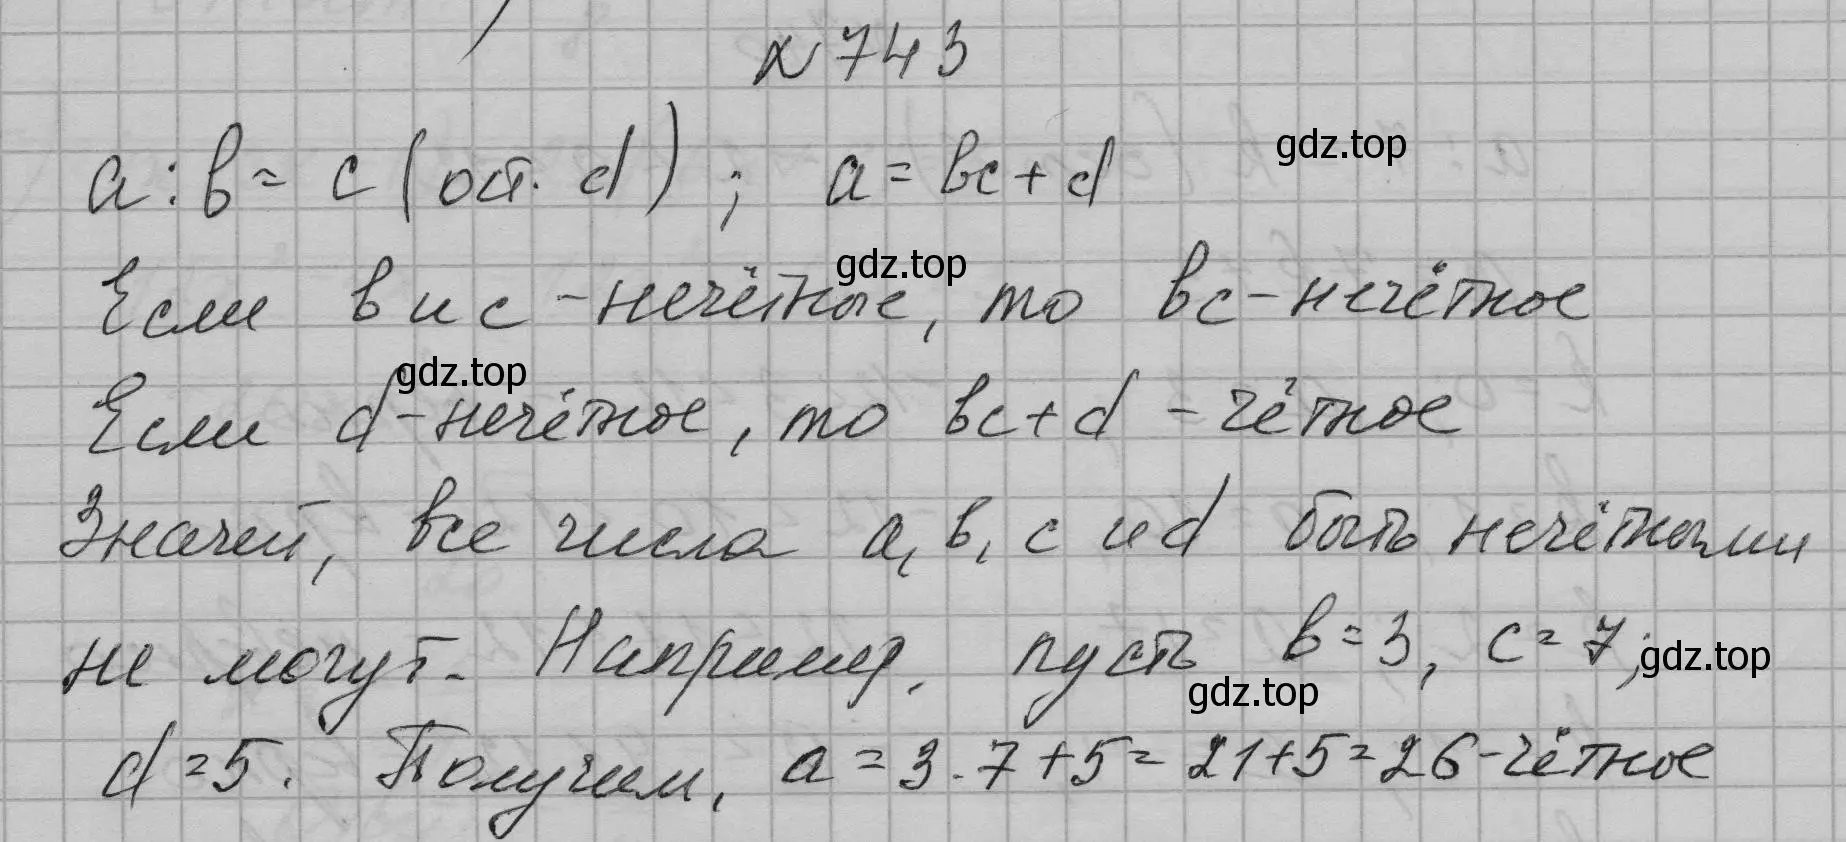 № 743
a : b = c (ост. d) ; a = bc + d
gdz.top
gdz.top
Если b и c - нечётные, то bc - нечётное
gdz.top
Если d - нечётное, то bc + d - чётное
Значит, все числа a, b, c и d быть нечётными
не могут. Например, пусть b = 3, c = 7;
gdz.top
gdz.top
d = 5. Получим, a = 3 · 7 + 5 = 21 + 5 = 26 - чётное